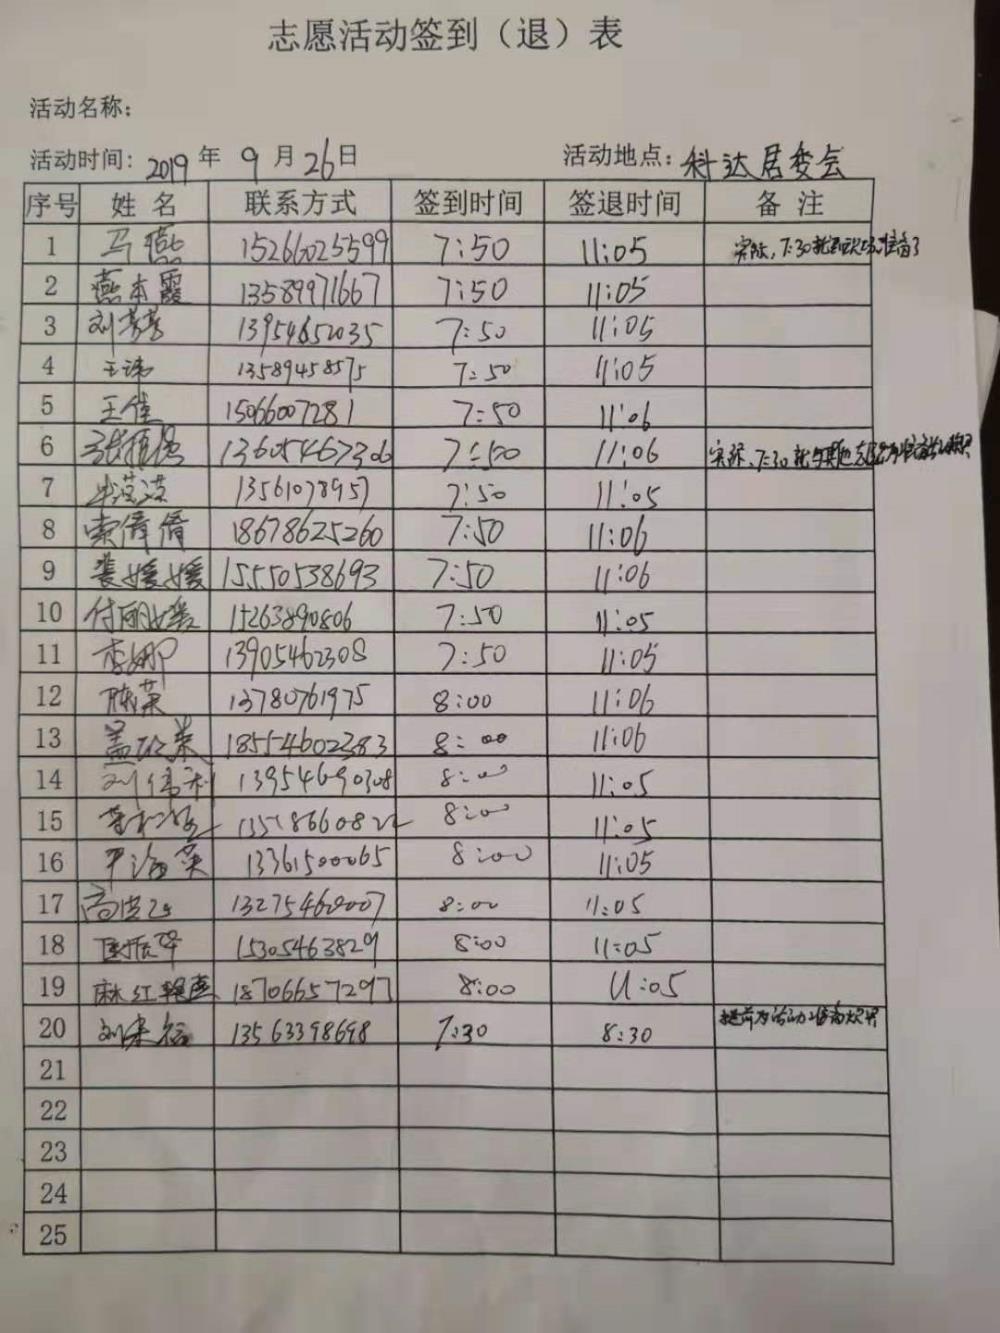 志愿活动签到（退）表
活动名称：
活动时间：2019年9月26日 活动地点：科达居委会
序号 姓名 联系方式 签到时间 签退时间 备注
1 马燕 15266025599 7:50 11:05 实际，7:30就到现场准备了
2 燕本霞 13589971667 7:50 11:05
3 刘芳芳 13954652035 7:50 11:05
4 王玮 13589458575 7:50 11:05
5 王佳 15066007281 7:50 11:06
6 13605467306 7:50 11:06 实际，7:30就与其他
7 13561078957 7:50 11:05
8 索倩倩 18678625260 7:50 11:06
9 裴媛媛 15550538693 7:50 11:06
10 付丽媛 15263890806 7:50 11:05
11 李娜 13905462308 7:50 11:05
12 陈荣 13780761975 8:00 11:06
13 18554602383 8:00 11:06
14 13954690308 8:00 11:05
15 8:00 11:05
16 13361500065 8:00 11:05
17 13275460007 8:00 11:05
18 15305463829 8:00 11:05
19 麻红艳 18706657297 8:00 11:05
20 刘来福 13563398698 7:30 8:30 提前为活动
21
22
23
24
25